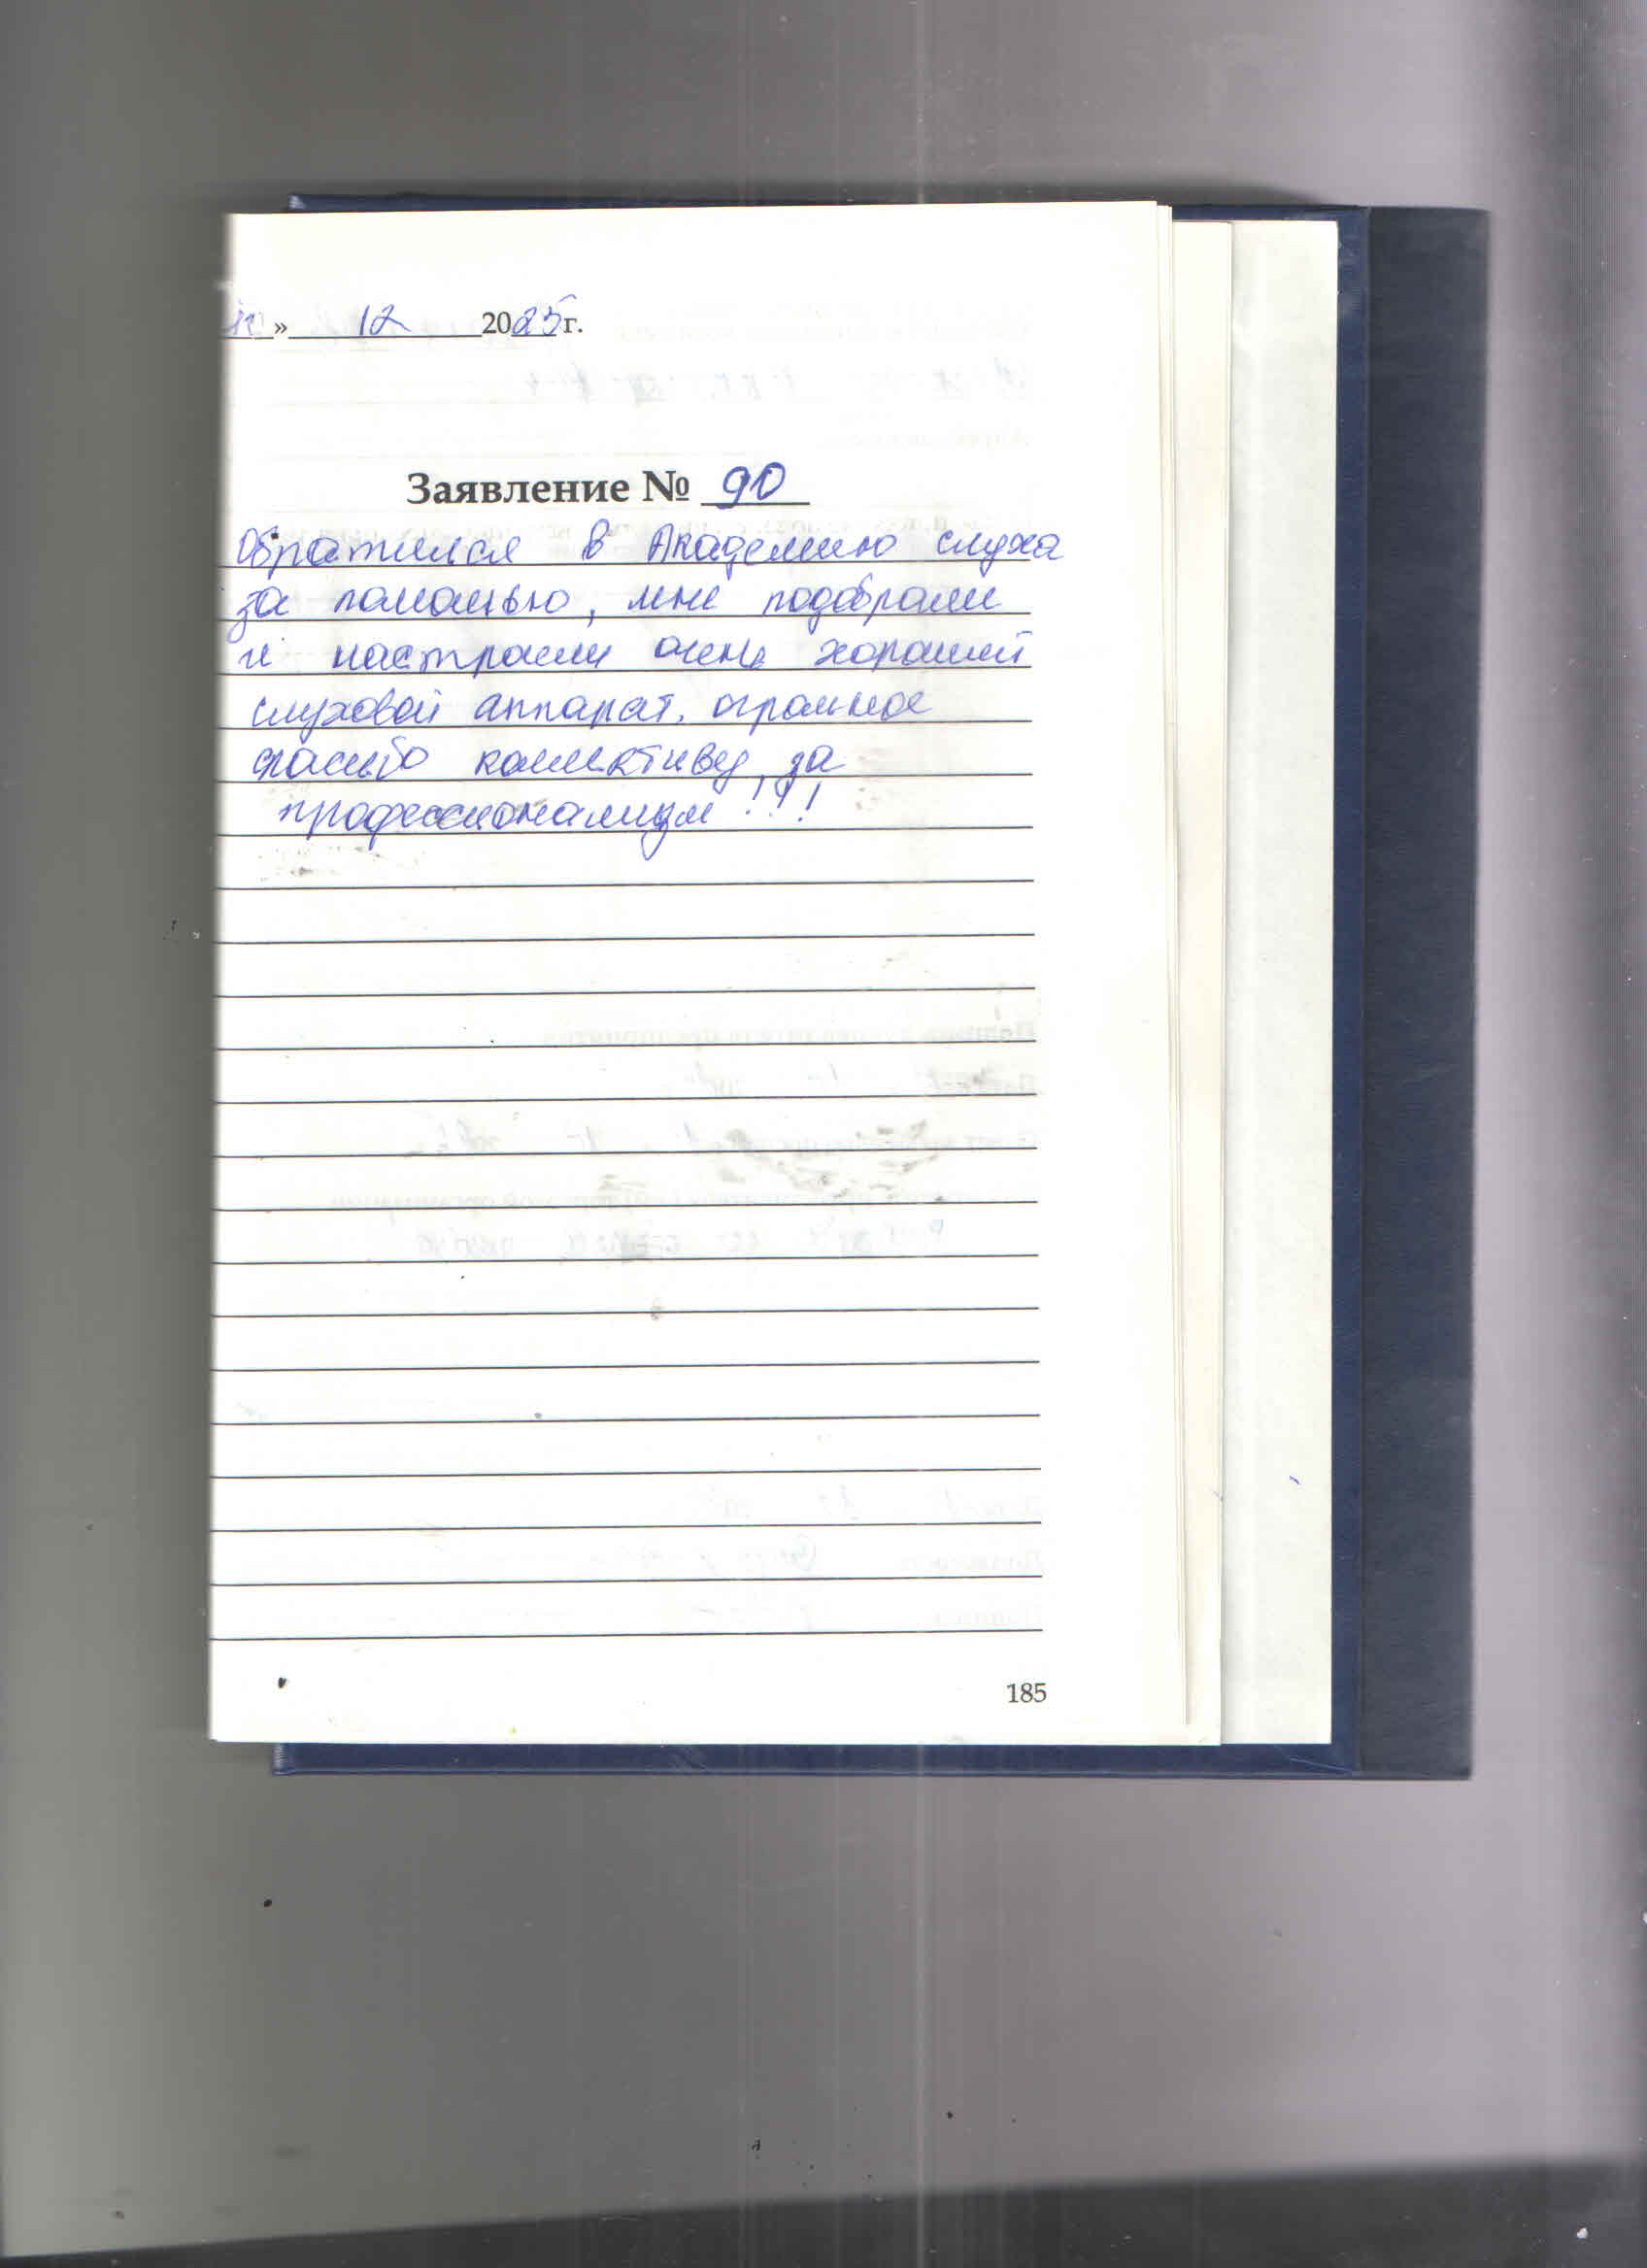 » 12 2025 г.
Заявление № 90
Обратился в Академию слуха
за помощью, мне подобрали
и настроили очень хороший
слуховой аппарат. огромное
спасибо коллективу за
профессионализм!!!
185